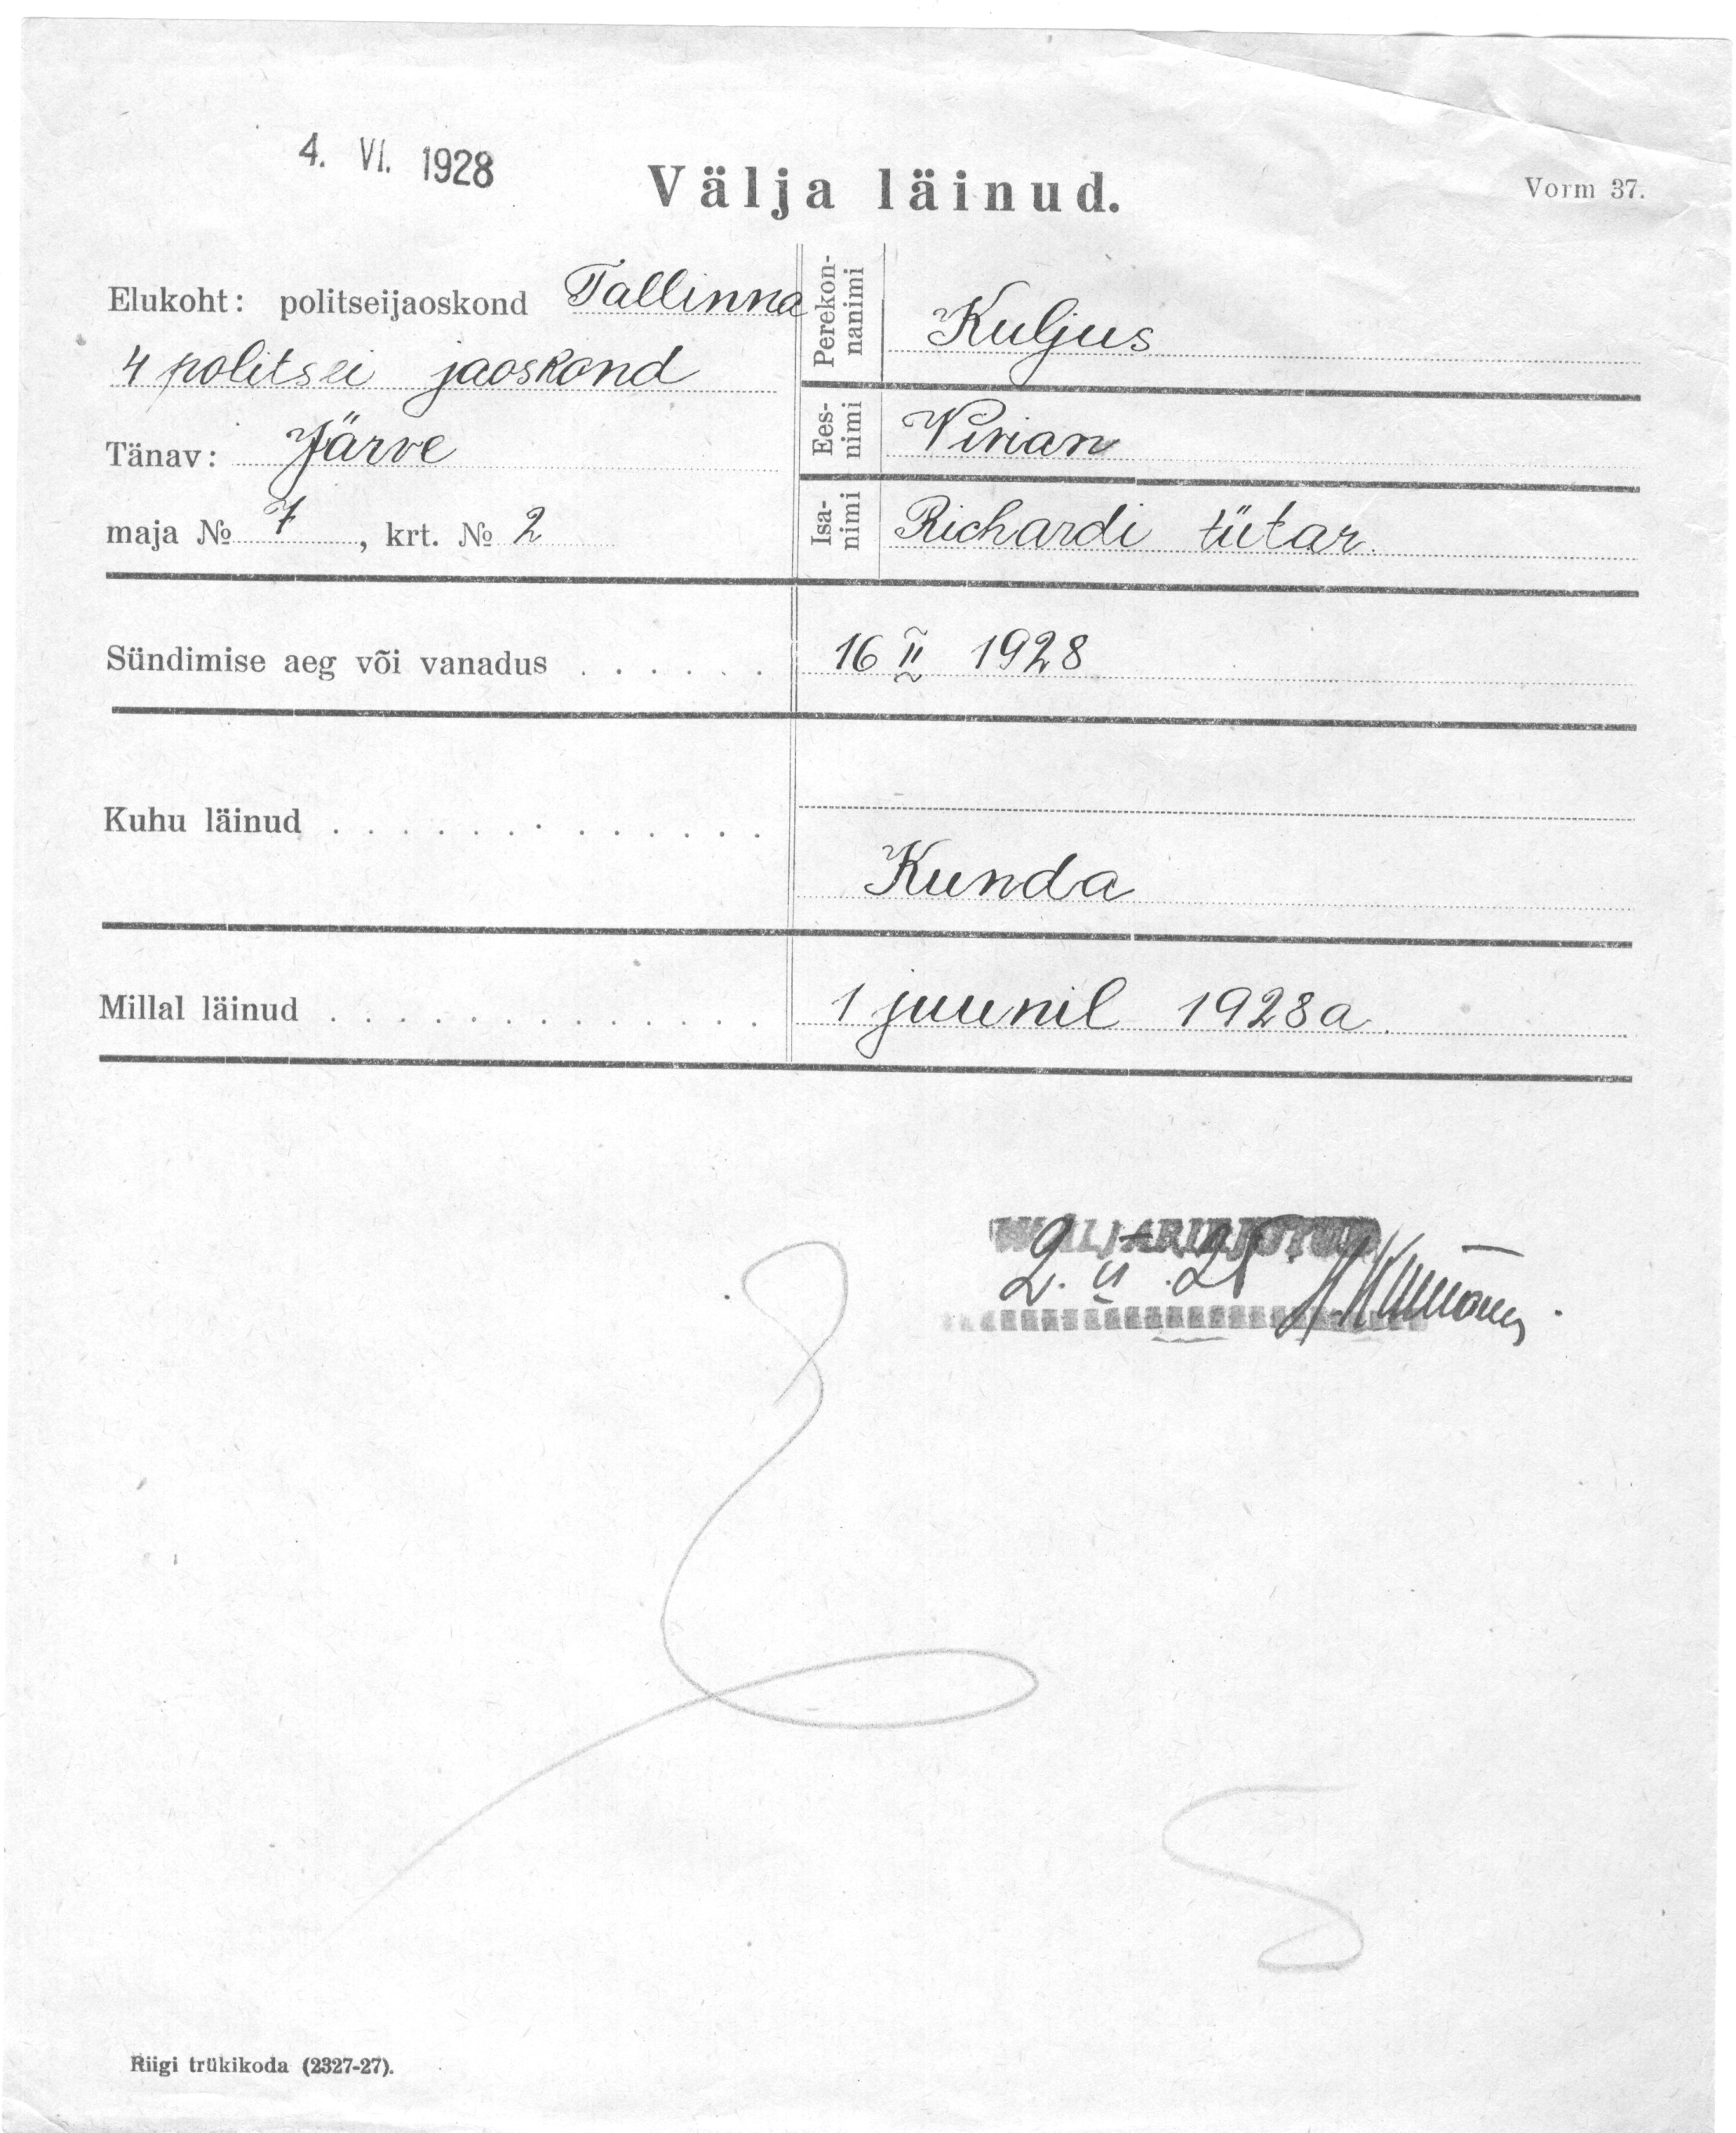 4. VI. 1928
Välja läinud.
Vorm 37.
Elukoht: politseijaoskond Tallinna
4 politsei jaoskond
Tänav: Järve
maja № 7, krt. № 2
Perekon-
nanimi
Kuljus
Ees-
nimi
Vivian
Isa-
nimi
Richardi tütar.
Sündimise aeg või vanadus . . . . . . 16 II 1928
Kuhu läinud . . . . . . . . . . . . .
Kunda
Millal läinud . . . . . . . . . . . . . 1 juunil 1928 a.
Riigi trükikoda (2327-27).